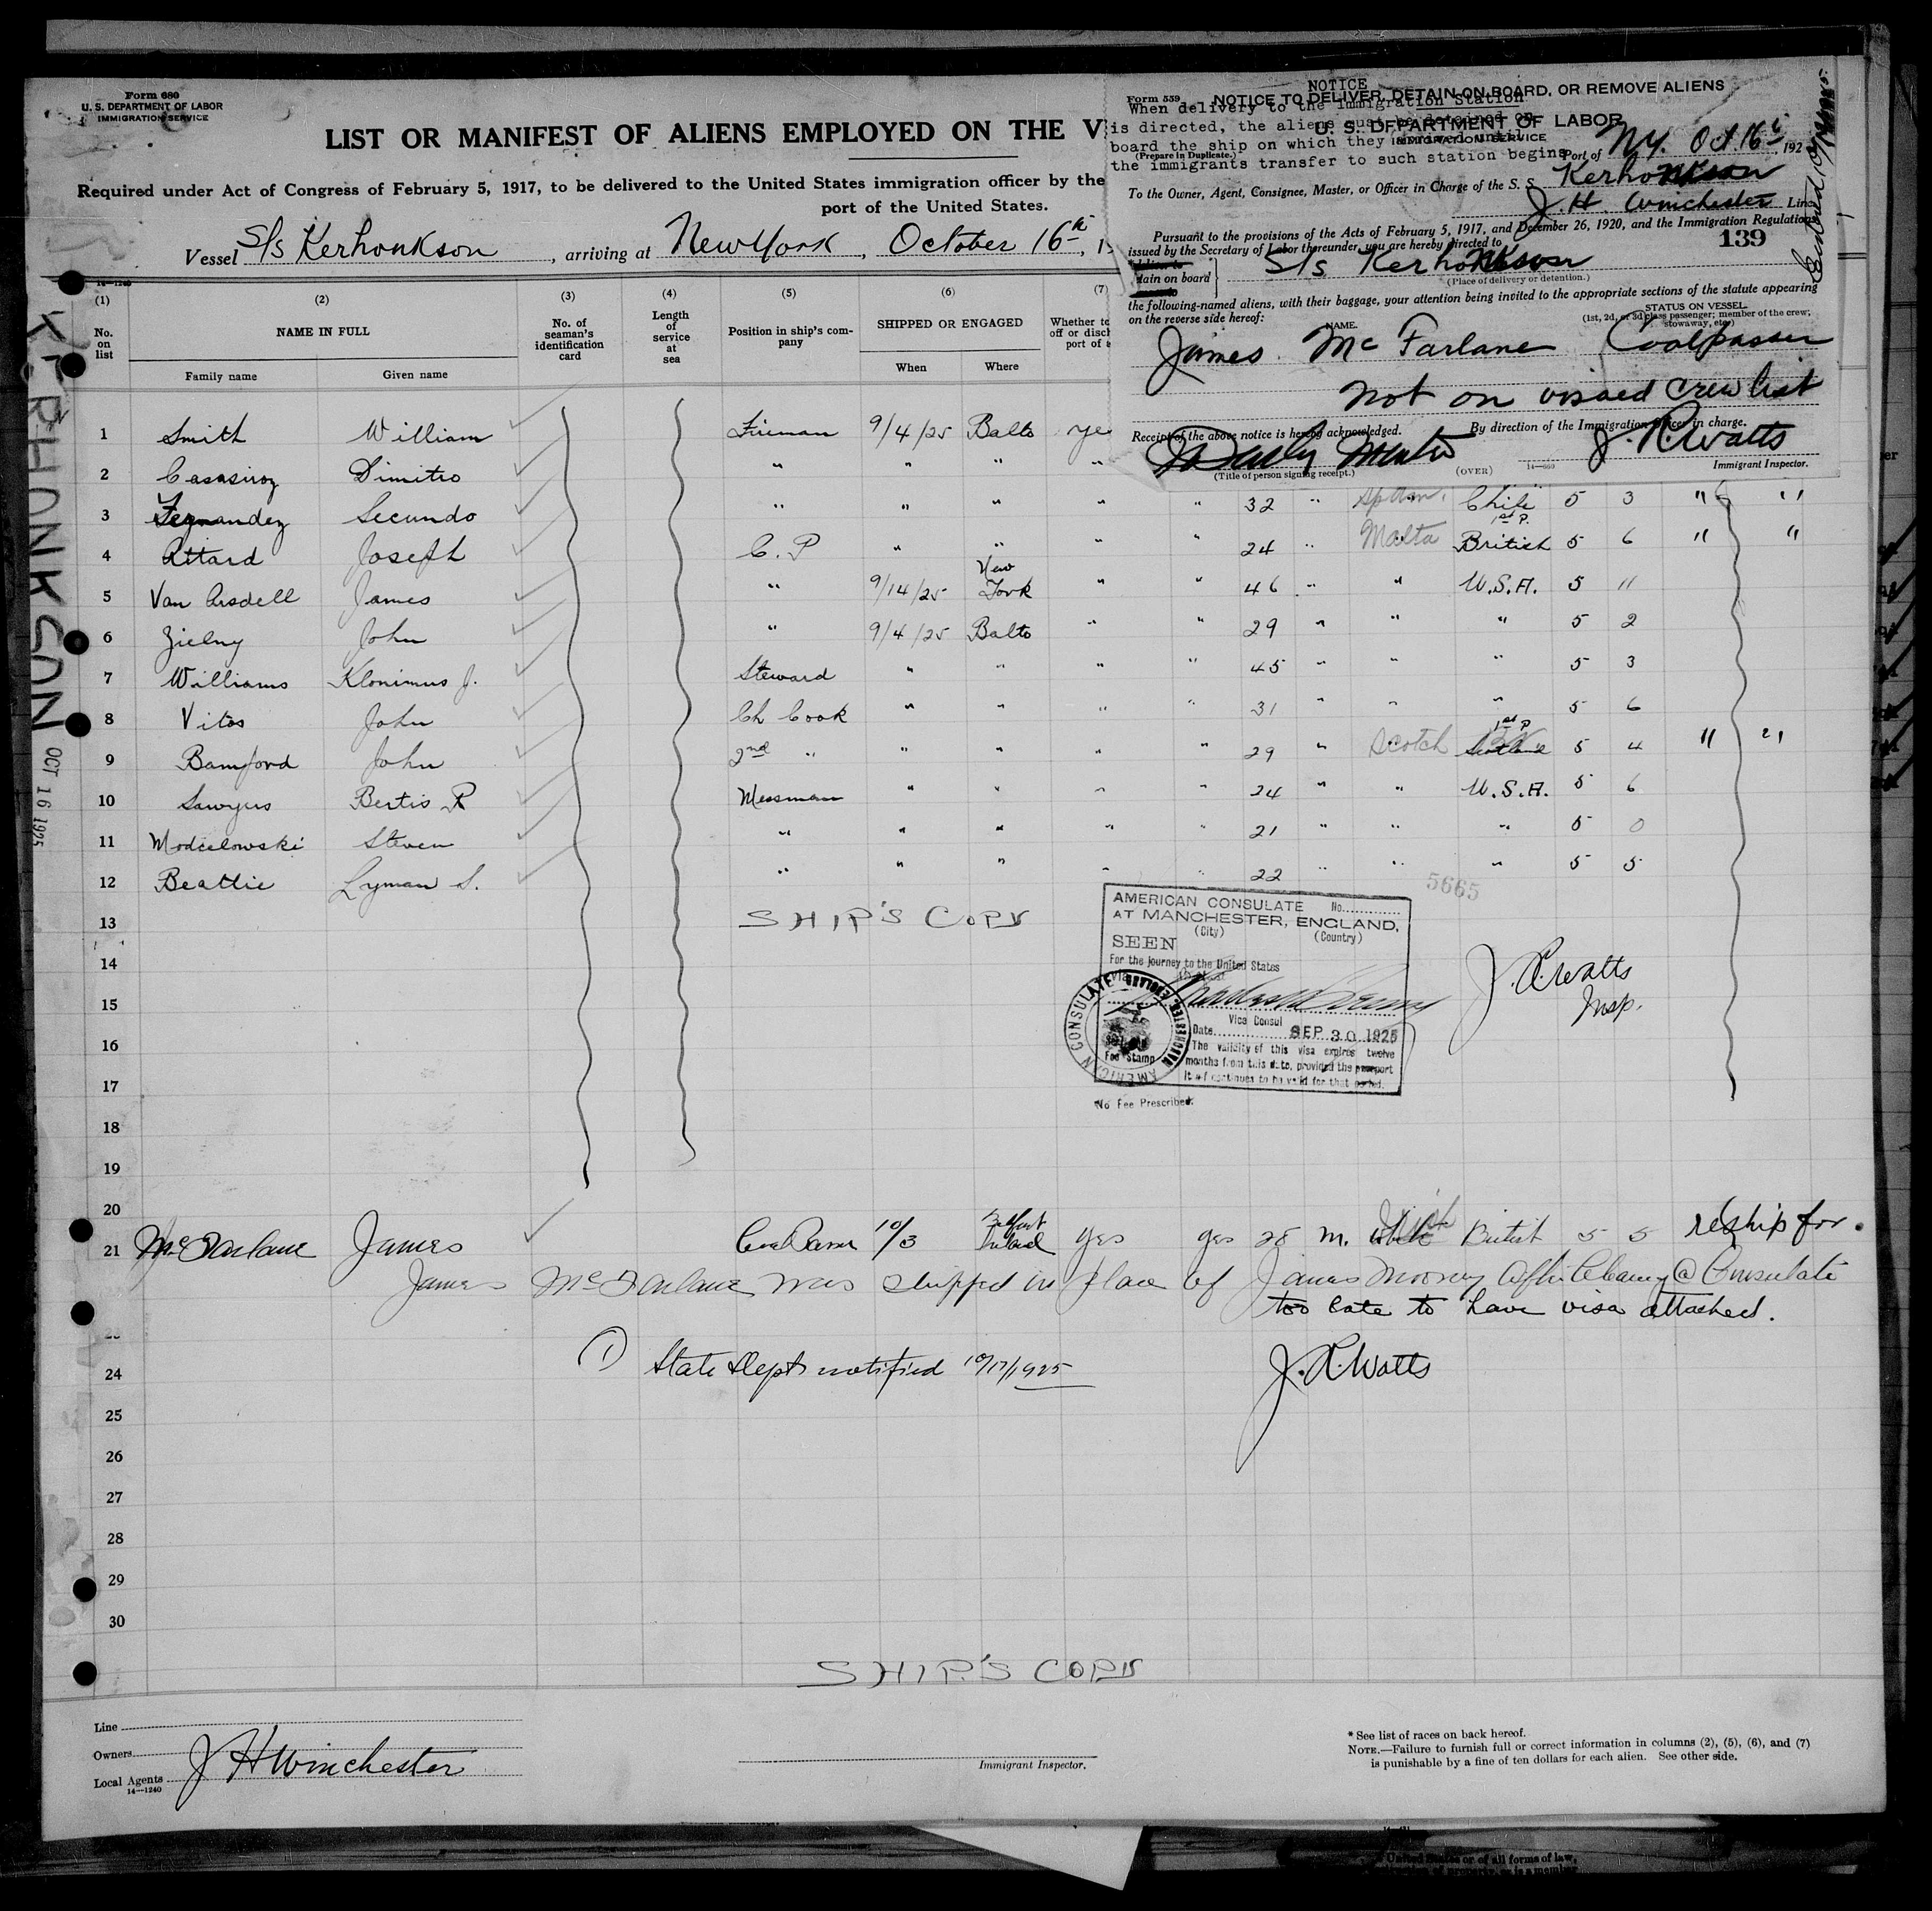 Form 680
U. S. DEPARTMENT OF LABOR
IMMIGRATION SERVICE
LIST OR MANIFEST OF ALIENS EMPLOYED ON THE V
Required under Act of Congress of February 5, 1917, to be delivered to the United States immigration officer by the
port of the United States.
Vessel S/s Kerhonkson, arriving at New York, October 16th, 1
Form 559
NOTICE TO DELIVER, DETAIN ON BOARD, OR REMOVE ALIENS
U. S. DEPARTMENT OF LABOR
IMMIGRATION SERVICE
(Prepare in Duplicate.)
NOTICE
When delivery to the Immigration Station
is directed, the aliens must be detained on
board the ship on which they arrived until
the immigrants transfer to such station begins
Port of N.Y. Oct. 16th, 192
To the Owner, Agent, Consignee, Master, or Officer in Charge of the S. S. Kerhonkson
J. H. Winchester Line
Pursuant to the provisions of the Acts of February 5, 1917, and December 26, 1920, and the Immigration Regulations
issued by the Secretary of Labor thereunder, you are hereby directed to
139
tain on board S/s Kerhonkson
(Place of delivery or detention.)
the following-named aliens, with their baggage, your attention being invited to the appropriate sections of the statute appearing
on the reverse side hereof:
NAME.
STATUS ON VESSEL
(1st, 2d, or 3d class passenger; member of the crew;
stowaway, etc.)
James McFarlane Coalpasser
Not on visaed crew list
Receipt of the above notice is hereby acknowledged.
By direction of the Immigration Officer in charge.
J. R. Watts
(Title of person signing receipt.)
(OVER)
14—660
Immigrant Inspector.
14—1240
(1) (2) (3) (4) (5) (6) (7
No. on list
NAME IN FULL
Family name Given name
No. of seaman's identification card
Length of service at sea
Position in ship's company
SHIPPED OR ENGAGED
When Where
1 Smith William Fireman 9/4/25 Balto ye
2 Dimitro " " " "
3 Fernandez Secundo " " " " " 32 " Sp Am. Chile 5 3 " "
4 Attard Joseph C. P " " " " 24 " Malta 1st P. British 5 6 " "
5 Van Arsdell James " 9/14/25 New York " " 46 " " U.S.A. 5 11
6 Zielny John " 9/4/25 Balto " " 29 " " " 5 2
7 Williams Klonimus J. Steward " " " " 45 " " " 5 3
8 Vitos John Ch Cook " " " " 31 " " " 5 6
9 Bamford John 2nd " " " " " 29 " Scotch 1st P. Scotland 5 4 " "
10 Sawyers Bertis R Messman " " " " 24 " " U.S.A. 5 6
11 Modzelowski Steven " " " " " 21 " " " 5 0
12 Beattie Lyman S. " " " " " 22 " " " 5 5
5665
13 SHIP'S COPY
14
15
16
17
18
19
20
AMERICAN CONSULATE No.
AT MANCHESTER, ENGLAND,
(City) (Country)
SEEN
For the journey to the United States
Vice Consul
Date SEP 30 1925
The validity of this visa expires twelve
months from this date, provided the passport
itself continues to be valid for that period.
AMERICAN CONSULATE MANCHESTER, ENGLAND
Fee Stamp
No Fee Prescribed.
J. R. Watts
Insp.
21 McFarlane James Coal Passer 10/3 Belfast Ireland yes yes 28 M. Irish British 5 5 reship for.
James McFarlane was shipped in place of James Mooney after Clearing @ Consulate
too late to have visa attached.
(1) State Dept notified 10/17/1925
J. R. Watts
24
25
26
27
28
29
30
SHIP'S COPY
Line
Owners
Local Agents
J H Winchester
14—1240
Immigrant Inspector.
* See list of races on back hereof.
NOTE.—Failure to furnish full or correct information in columns (2), (5), (6), and (7)
is punishable by a fine of ten dollars for each alien. See other side.
KERHONKSON
OCT 16 1925
United States or of all forms of law,